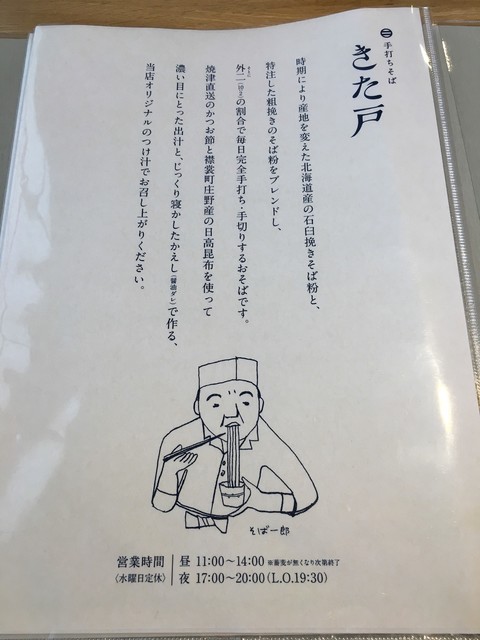 手打ちそば
きた戸
時期により産地を変えた北海道産の石臼挽きそば粉と、
特注した粗挽きのそば粉をブレンドし、
外二(十対二)の割合で毎日完全手打ち・手切りするおそばです。
焼津直送のかつお節と襟裳町庄野産の日高昆布を使って
濃い目にとった出汁と、じっくり寝かしたかえし(醤油ダレ)で作る、
当店オリジナルのつけ汁でお召し上がりください。
そば一郎
営業時間 昼 11:00〜14:00 ※蕎麦が無くなり次第終了
〈水曜日定休〉 夜 17:00〜20:00(L.O.19:30)